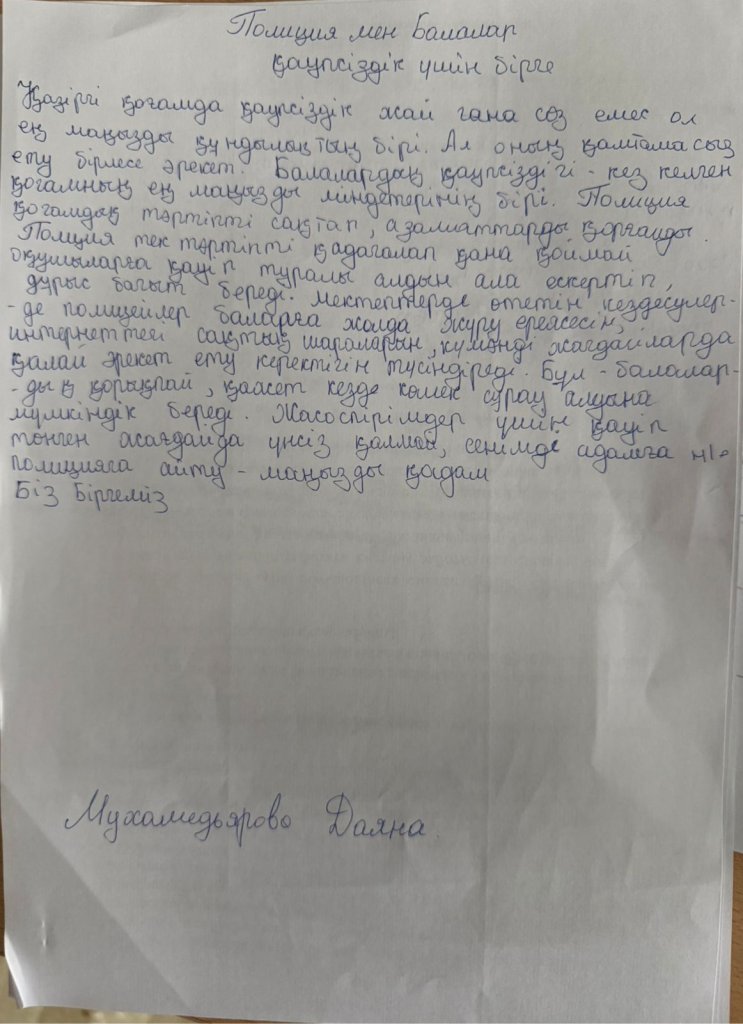 Полиция мен Балалар
қауіпсіздік үшін бірге
Қазіргі қоғамда қауіпсіздік жай ғана сөз емес ол
ең маңызды құндылықтың бірі. Ал оның қамтамасыз
ету бірлесе әрекет. Балалардың қауіпсіздігі - кез келген
қоғамның ең маңызды міндетерінің бірі. Полиция
қоғамдық тәртіпті сақтап, азаматтарды қорғайды.
Полиция тек тәртіпті қадағалап қана қоймай
оқушыларға қауіп туралы алдын ала ескертіп,
дұрыс бағыт береді. Мектептерде өтетін кездесулер-
-де полицейлер баларға жолда жүру ережесін,
интернеттегі сақтық шараларын, күмәнді жағдайларда
қалай әрекет ету керектігін түсіндіреді. Бұл - балалар-
-дың қорықпай, қажет кезде көмек сұрау алуына
мүмкіндік береді. Жасөспірімдер үшін қауіп
төнген жағдайда үнсіз қалмай, сенімді адамға
полицияға айту - маңызды қадам
Біз Біргеміз
Мухамедьярово Даяна.